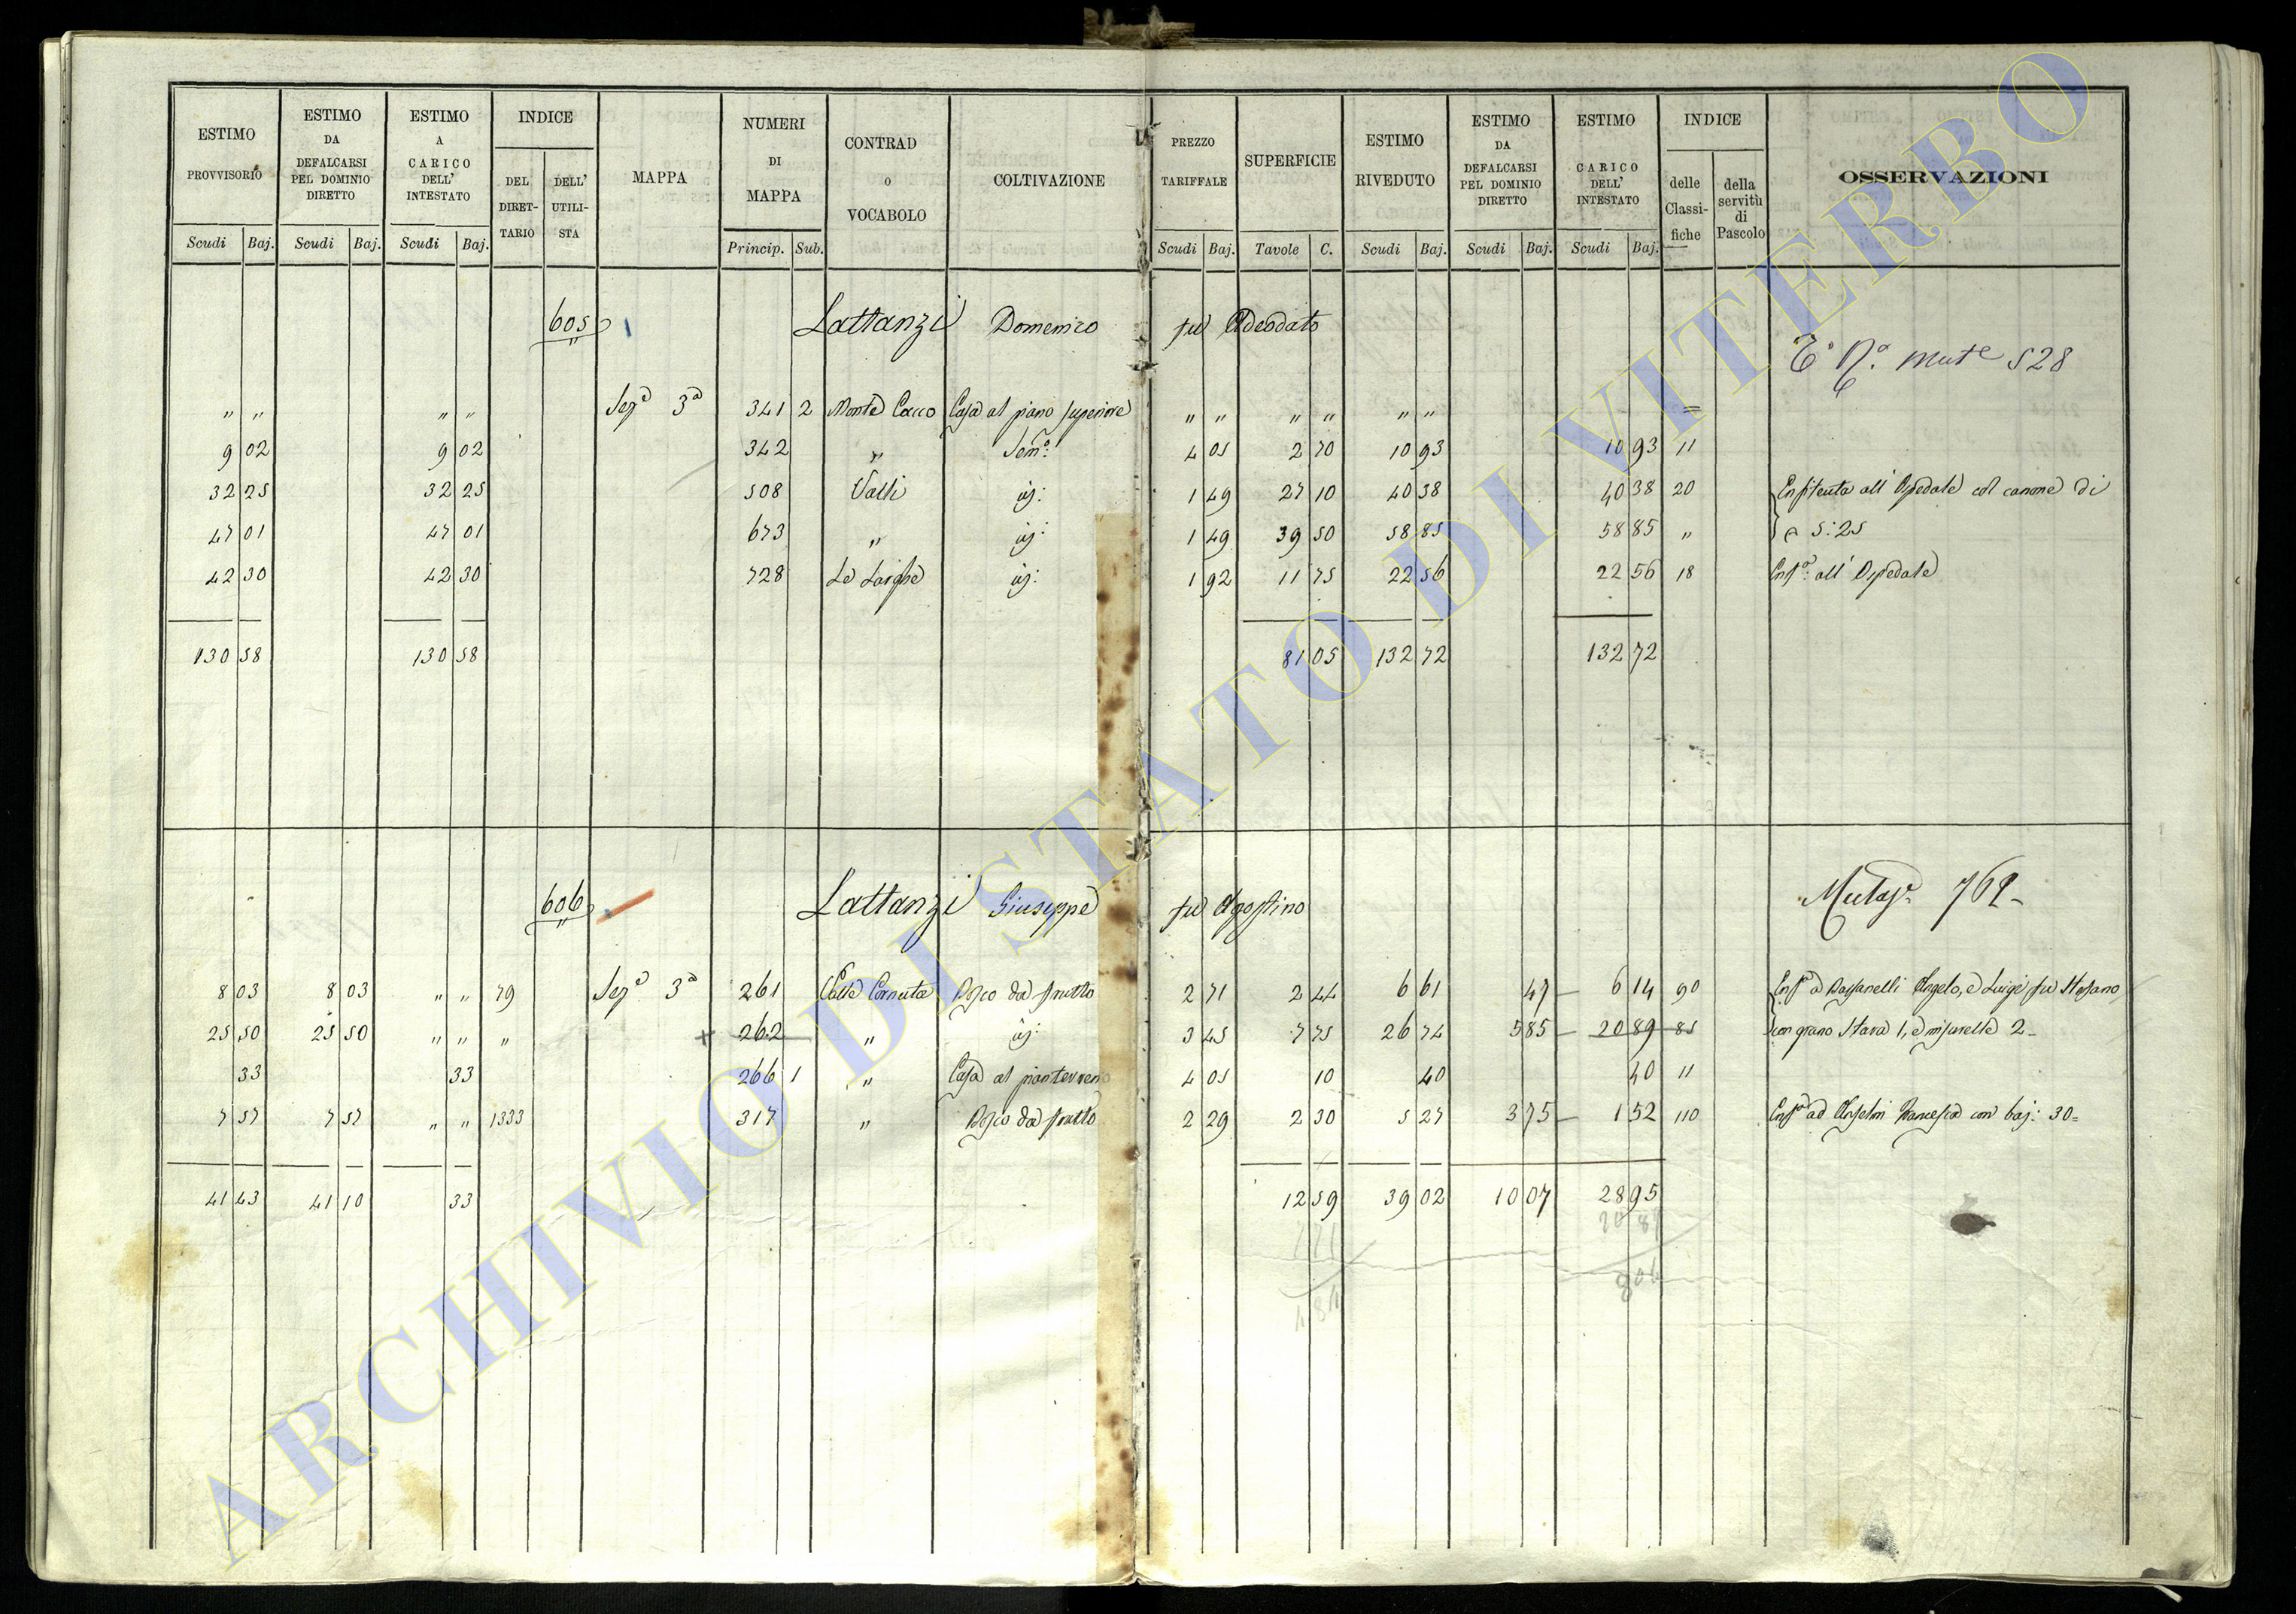 ESTIMO PROVVISORIO | ESTIMO DA DEFALCARSI PEL DOMINIO DIRETTO | ESTIMO A CARICO DELL' INTESTATO | INDICE | MAPPA | NUMERI DI MAPPA | CONTRAD o VOCABOLO | COLTIVAZIONE | PREZZO TARIFFALE | SUPERFICIE | ESTIMO RIVEDUTO | ESTIMO DA DEFALCARSI PEL DOMINIO DIRETTO | ESTIMO CARICO DELL' INTESTATO | INDICE | OSSERVAZIONI
DEL DIRET-TARIO | DELL' UTILI-STA | delle Classi-fiche | della servitù di Pascolo
Scudi | Baj. | Scudi | Baj. | Scudi | Baj. | Princip. | Sub. | Scudi | Baj. | Tavole | C. | Scudi | Baj. | Scudi | Baj. | Scudi | Baj.
605 Lattanzi Domenico fu Adeodato
mut 528
" " | " " | Sez.e 3a | 341 | 2 | Monte Cucco | Casa al piano superiore | " " | " " | " " | =
9 02 | 9 02 | 342 | " | Sem.o | 4 05 | 2 70 | 10 93 | 10 93 | 11
32 25 | 32 25 | 508 | Valli | id: | 1 49 | 27 10 | 40 38 | 40 38 | 20 | Enfiteuta all' Ospedale col canone di
47 01 | 47 01 | 673 | " | id: | 1 49 | 39 50 | 58 85 | 58 85 | " | 5:25
42 30 | 42 30 | 728 | Le Larghe | id: | 1 92 | 11 75 | 22 56 | 22 56 | 18 | Enf.a all' Ospedale
130 58 | 130 58 | 81 05 | 132 72 | 132 72
606 Lattanzi Giuseppe fu Agostino
8 03 | 8 03 | " " | 79 | Sez.e 3a | 261 | Valle Cornuta | Bosco da frutto | 2 71 | 2 44 | 6 61 | 47 | 6 14 | 90 | Enf.a Angelo, e Luigi fu Stefano
25 50 | 25 50 | " " | " | + 262 | " | id: | 3 45 | 7 75 | 26 74 | 5 85 | 20 89 | 85 | con grano Stara 1, e misurelle 2
33 | 33 | 266 | 1 | " | Casa al pianterreno | 4 05 | 10 | 40 | 40 | 11
7 57 | 7 57 | " " | 1333 | 317 | " | Bosco da frutto | 2 29 | 2 30 | 5 27 | 3 75 | 1 52 | 110 | Enf.a ad Anselmi Francesco con baj: 30
41 43 | 41 10 | 33 | 12 59 | 39 02 | 10 07 | 28 95
20 89
8 06
4 84
ARCHIVIO DI STATO DI VITERBO